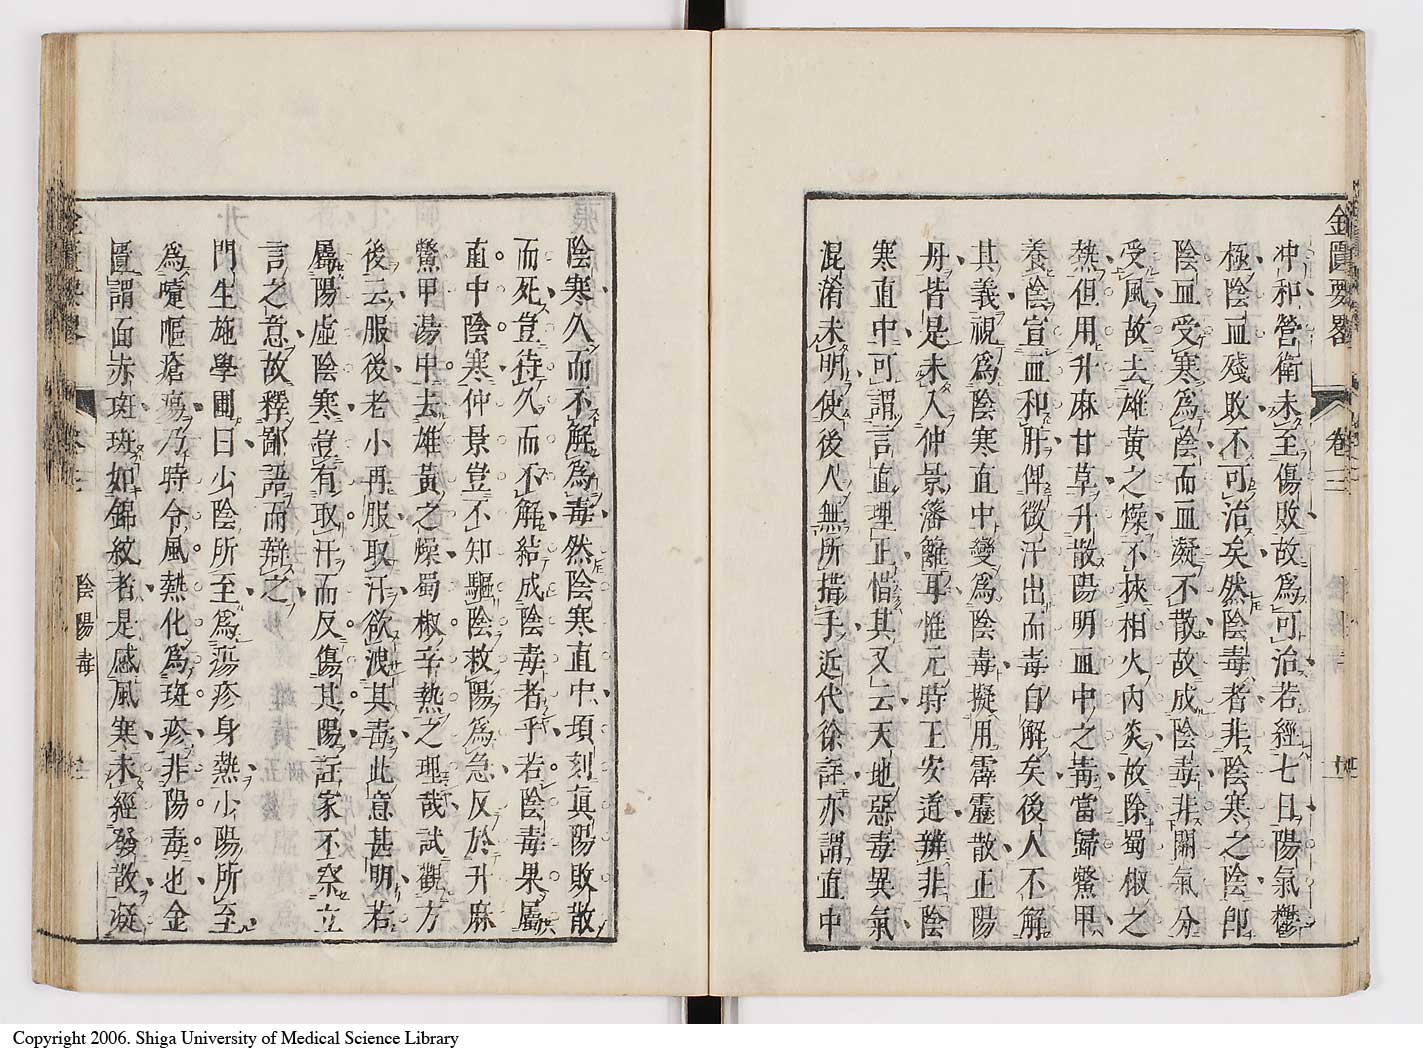 金匱要畧 卷三
冲和營衛未至傷敗故爲可治若經七日陽氣鬱
極陰血殘敗不可治矣然陰毒者非陰寒之陰卽
陰血受寒爲陰而血凝不散故成陰毒非關氣分
受風故去雄黃之燥不挾相火內炎故除蜀椒之
熱但用升麻甘草升散陽明血中之毒當歸鱉甲
養陰宣血和肝俾微汗出而毒自解矣後人不解
其義視爲陰寒直中變爲陰毒擬用霹靂散正陽
丹皆是未入仲景藩籬耳惟元時王安道辨非陰
寒直中可謂言直理正惜其又云天地惡毒異氣
混淆未明使後人無所指手近代徐註亦謂直中
陰寒久而不解爲毒然陰寒直中頃刻眞陽敗散
而死豈待久而不解結成陰毒者乎若陰毒果屬
直中陰寒仲景豈不知驅陰救陽爲急反於升麻
鱉甲湯中去雄黃之燥蜀椒辛熱之理哉試觀方
後云服後老小再服取汗欲洩其毒此意甚明若
屬陽虛陰寒豈有取汗而反傷其陽註家不察立
言之意故釋鄙語而辯之
門生施學圃曰少陰所至爲瘍疹身熱少陽所至
爲嚏嘔瘡瘍乃時令風熱化爲斑疹非陽毒也金
匱謂面赤斑斑如錦紋者是感風寒未經發散凝
陰陽毒
Copyright 2006. Shiga University of Medical Science Library